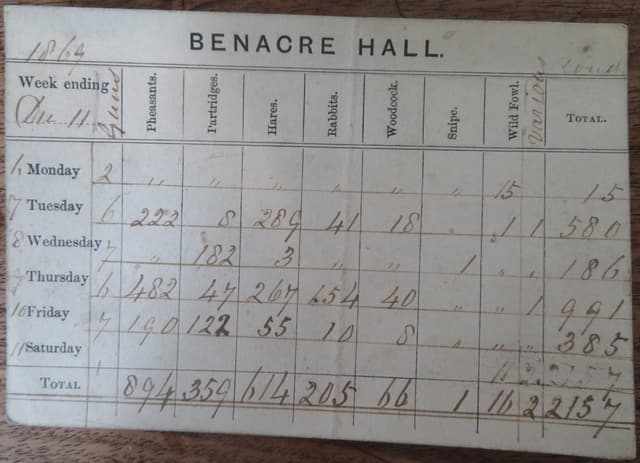 BENACRE HALL.
1869
Week ending Dec 11 Guns Pheasants. Partridges. Hares. Rabbits. Woodcock. Snipe. Wild Fowl. Various TOTAL.
6 Monday 2 " " " " " " 15 15
7 Tuesday 6 222 8 289 41 18 1 1 580
8 Wednesday 7 " 182 3 " " 1 " " 186
9 Thursday 6 482 47 267 154 40 " " 1 991
10 Friday 7 190 122 55 10 8 " " " 385
11 Saturday
TOTAL 894 359 614 205 66 1 16 2 2157